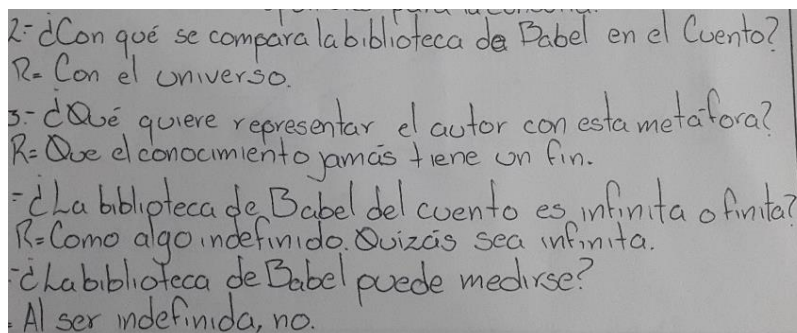 2.- ¿Con qué se compara la biblioteca de Babel en el Cuento?
R= Con el universo.
3.- ¿Qué quiere representar el autor con esta metáfora?
R= Que el conocimiento jamás tiene un fin.
- ¿La biblioteca de Babel del cuento es infinita o finita?
R= Como algo indefinido. Quizás sea infinita.
- ¿La biblioteca de Babel puede medirse?
Al ser indefinida, no.